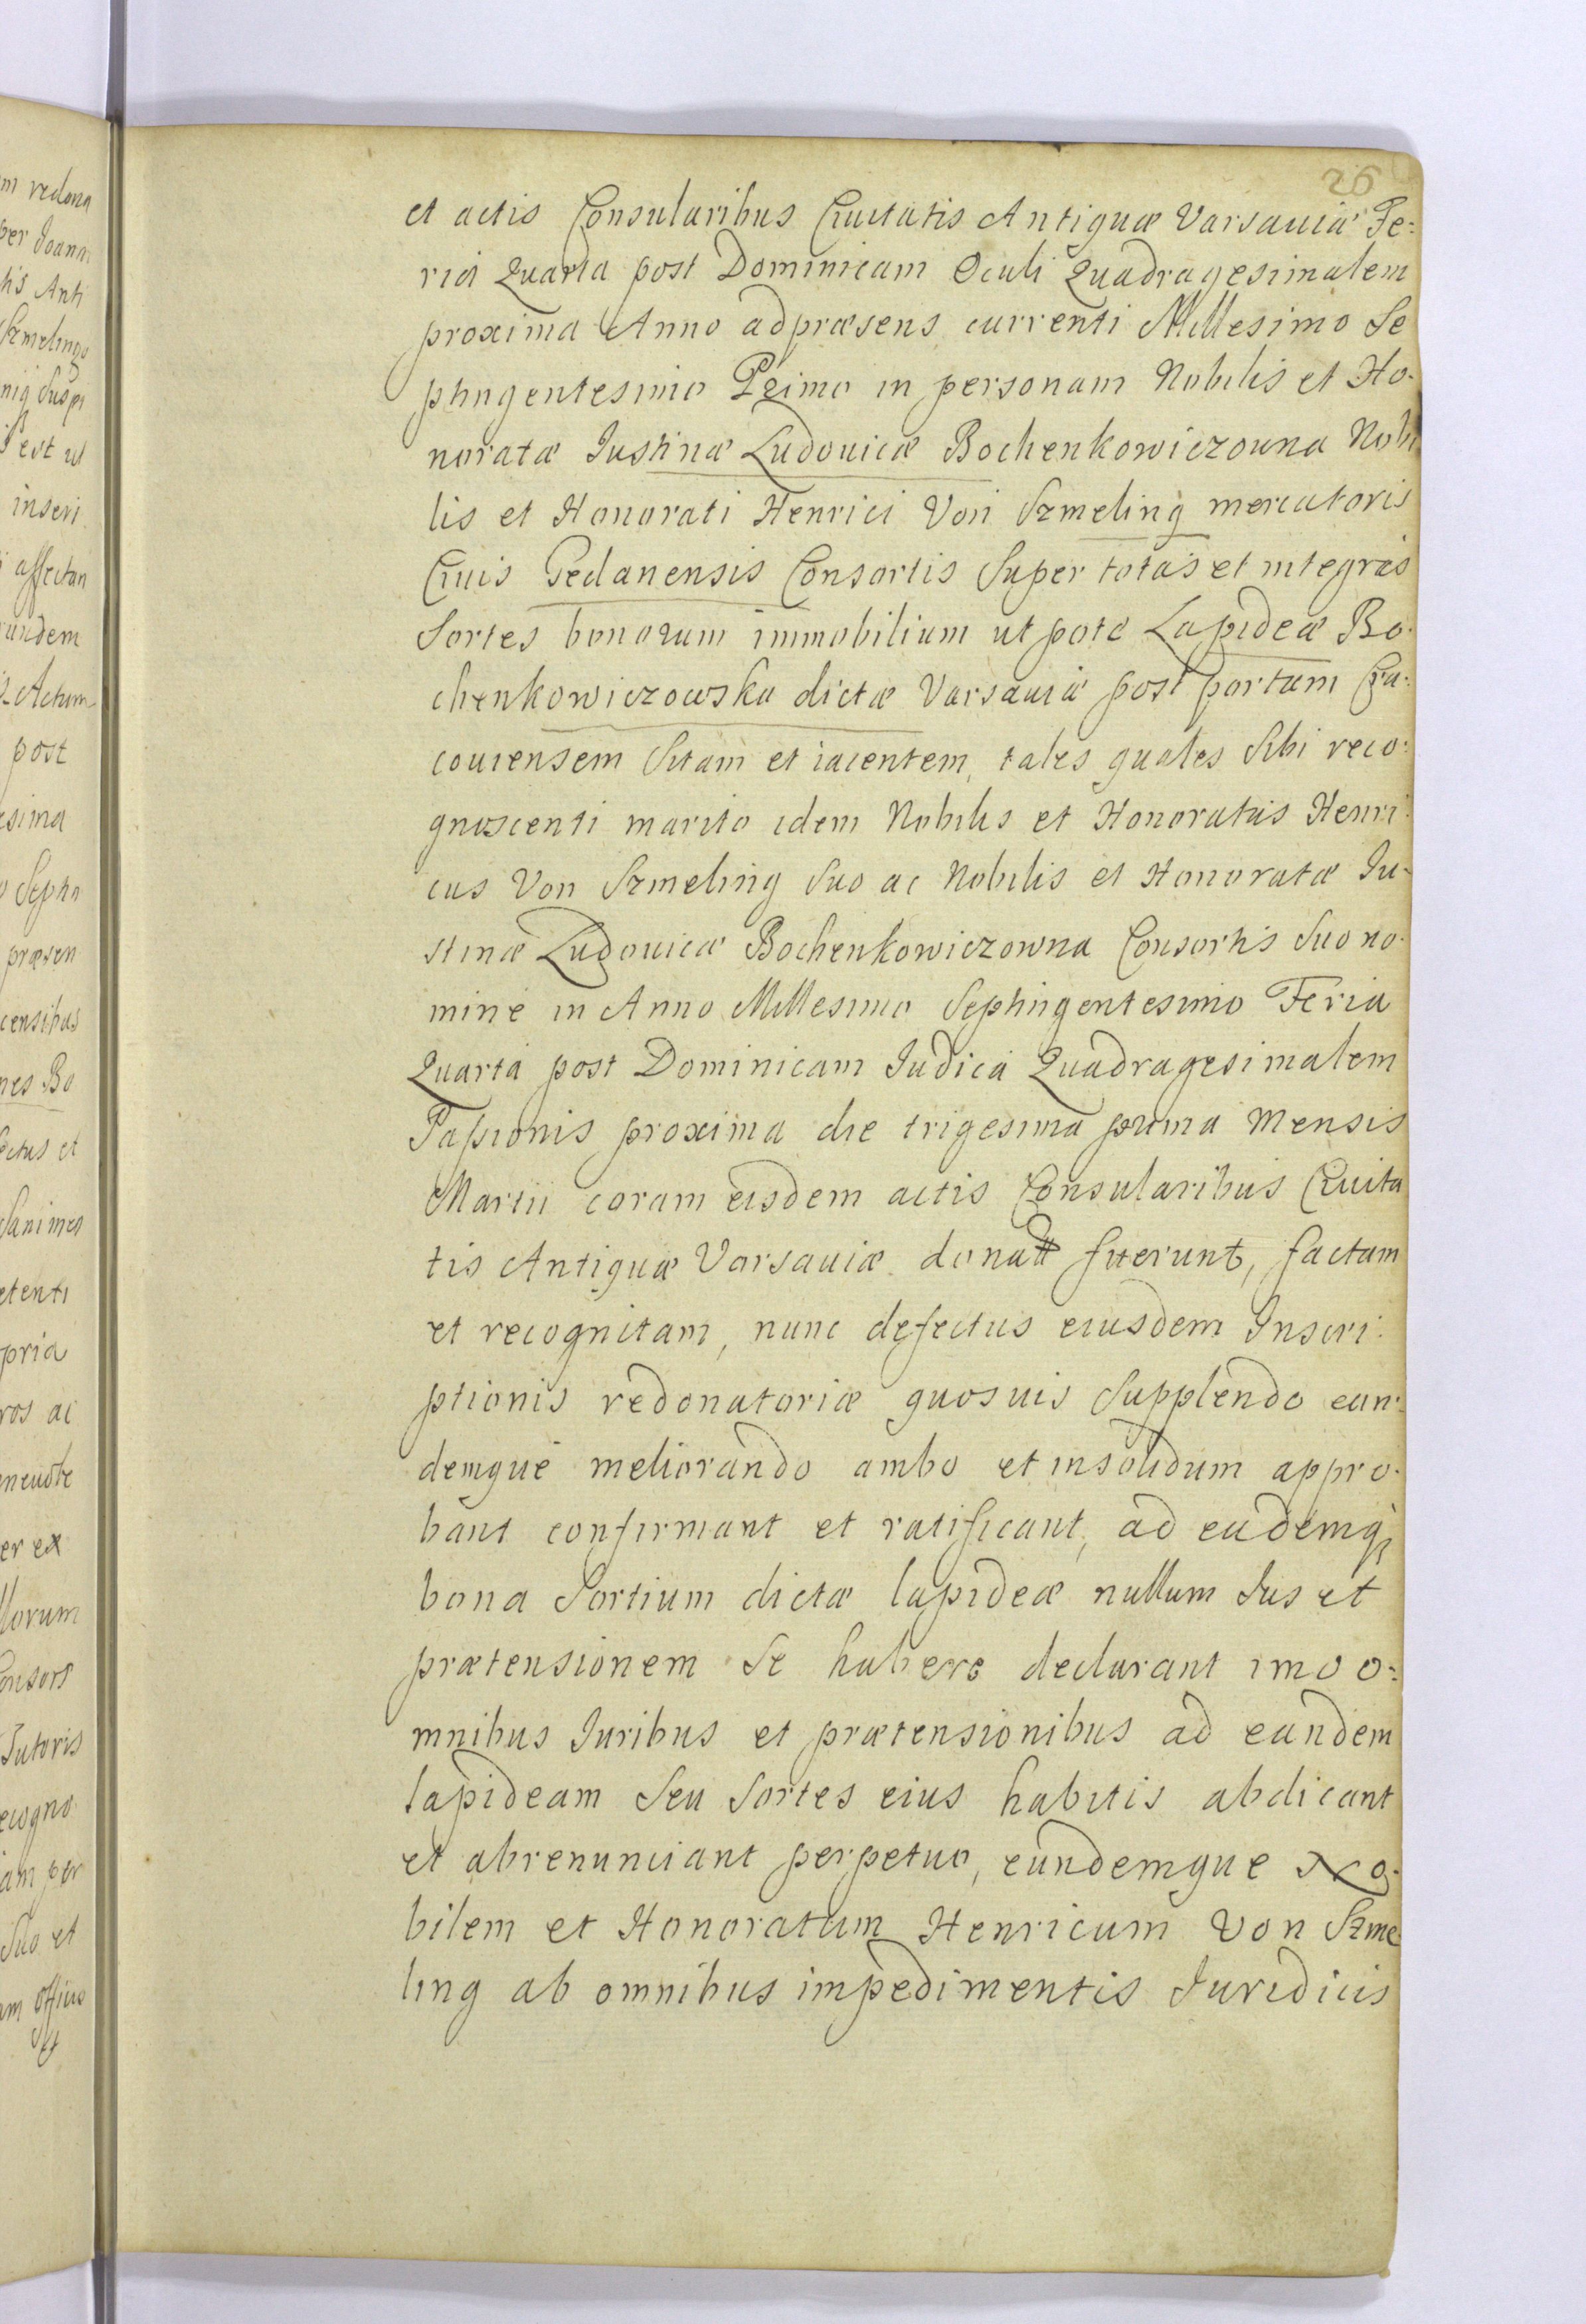 26
et actis Consularibus Ciuitatis Antiquæ Varsauiæ Fe:
ria Quarta post Dominicam Oculi Quadragesimalem
proxima Anno adpræsens currenti Millesimo Se
ptingentesimo Primo in personam Nobilis et Ho-
noratæ Iustinæ Ludouicæ Bochenkowiczowna Nobi
lis et Honorati Henrici Von Szmeling mercatoris
Ciuis Gedanensis Consortis Super totas et integras
Sortes bonorum immobilium utpote Lapideæ Bo-
chenkowiczowska dictæ Varsauiæ post portam Cra:
couiensem Sitam et iacentem, tales quales Sibi reco:
gnoscenti marito idem Nobilis et Honoratus Henri:
cus Von Szmeling Suo ac Nobilis et Honoratæ Iu-
stinæ Ludouicæ Bochenkowiczowna Consortis Suo no-
mine in Anno Millesimo Septingentesimo Feria
Quarta post Dominicam Iudica Quadragesimalem
Passionis proxima die trigesima prima Mensis
Martii coram eisdem actis Consularibus Ciuita
tis Antiquæ Varsauiæ fuerunt, factam
et recognitam, nunc defectus eiusdem Inscri:
ptionis redonatoriæ quosuis Supplendo ean:
demque meliorando ambo et insolidum appro-
bant confirmant et ratificant, ad eademq;
bona Sortium dictæ lapideæ nullum Ius et
prætensionem Se habere declarant imo o:
mnibus Iuribus et prætensionibus ad eandem
lapideam Seu Sortes eius habitis abdicant
et abrenunciant perpetuo, eundemque No-
bilem et Honoratum Henricum Von Szme
ling ab omnibus impedimentis Iuridicis